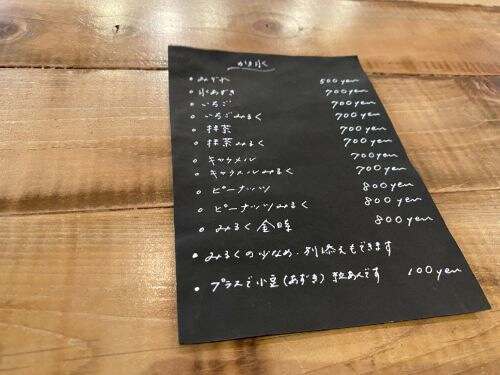 かき氷
• みぞれ 500yen
• 氷あずき 700yen
• いちご 700yen
• いちごみるく 700yen
• 抹茶 700yen
• 抹茶みるく 700yen
• キャラメル 700yen
• キャラメルみるく 700yen
• ピーナッツ 800yen
• ピーナッツみるく 800yen
• みるく金時 800yen
• みるくの少なめ・別添えもできます
• プラスで小豆(あずき)粒あんです 100yen